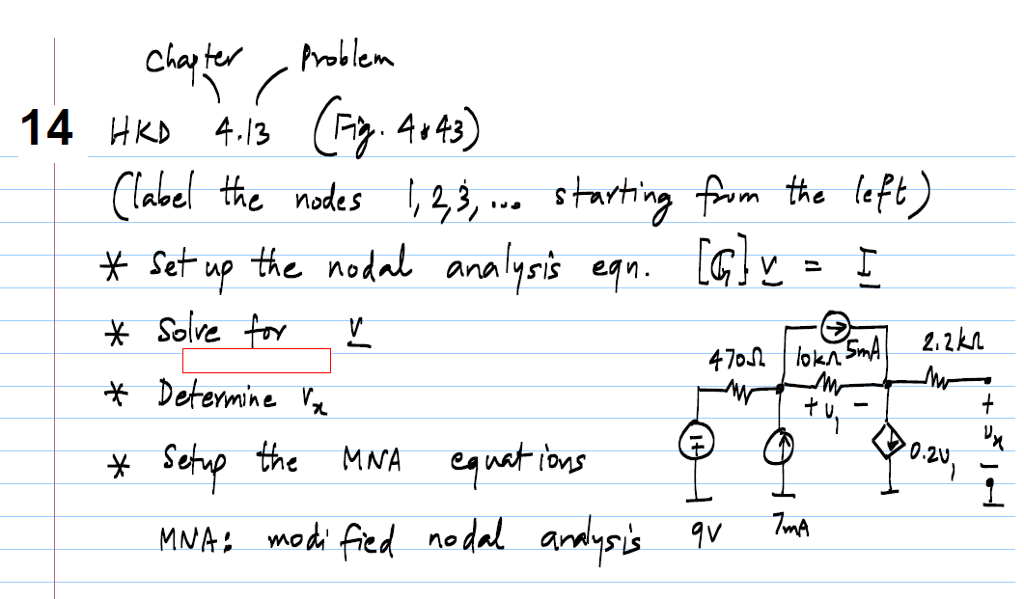 Chapter Problem
14 HKD 4.13 (Fig. 4.43)
(label the nodes 1, 2, 3, ... starting from the left)
* Set up the nodal analysis eqn. [G] v = I
* Solve for v
* Determine vx
* Setup the MNA equations
MNA: modified nodal analysis
470Ω 10kΩ 5mA 2.2kΩ
+ v1 −
+ vx −
∓
0.2v1
9V 7mA